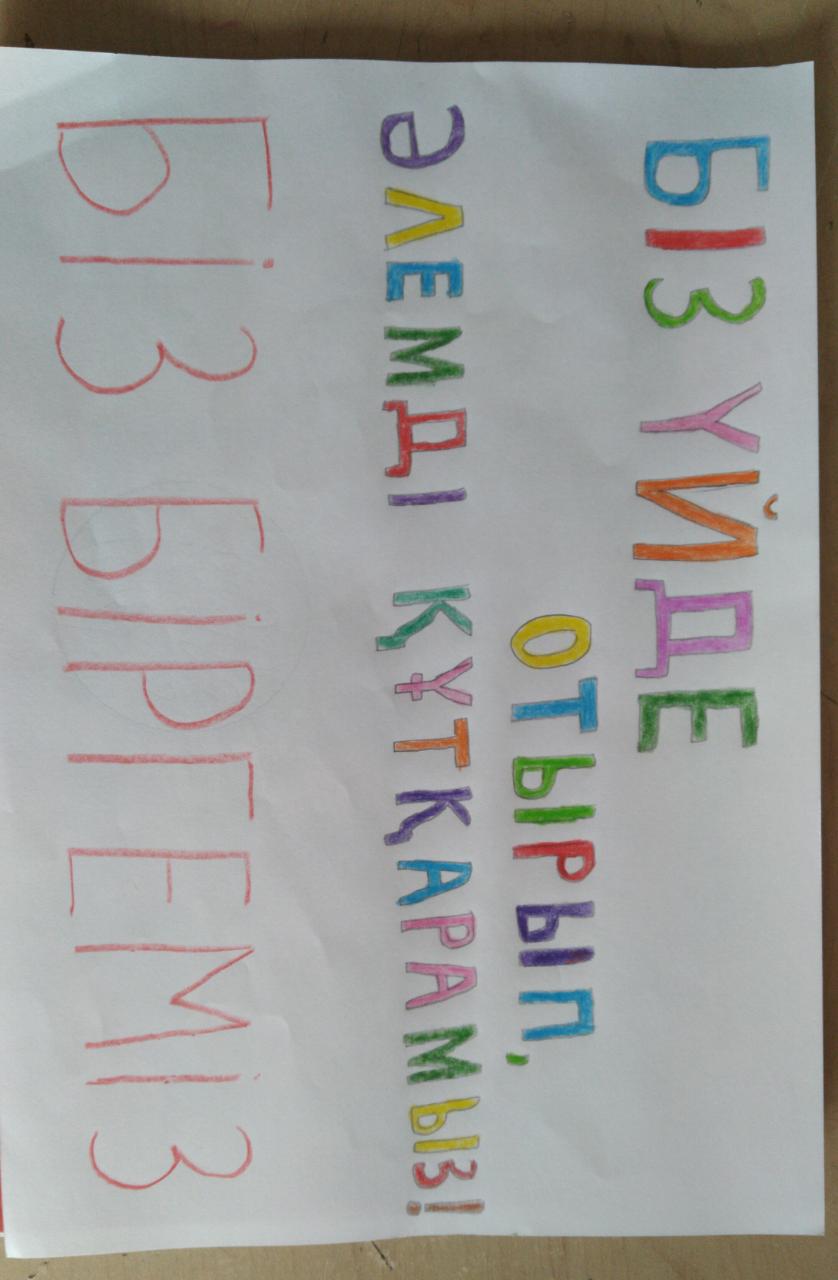 БІЗ ҮЙДЕ
ОТЫРЫП,
ӘЛЕМДІ ҚҰТҚАРАМЫЗ!
БІЗ БІРГЕМІЗ